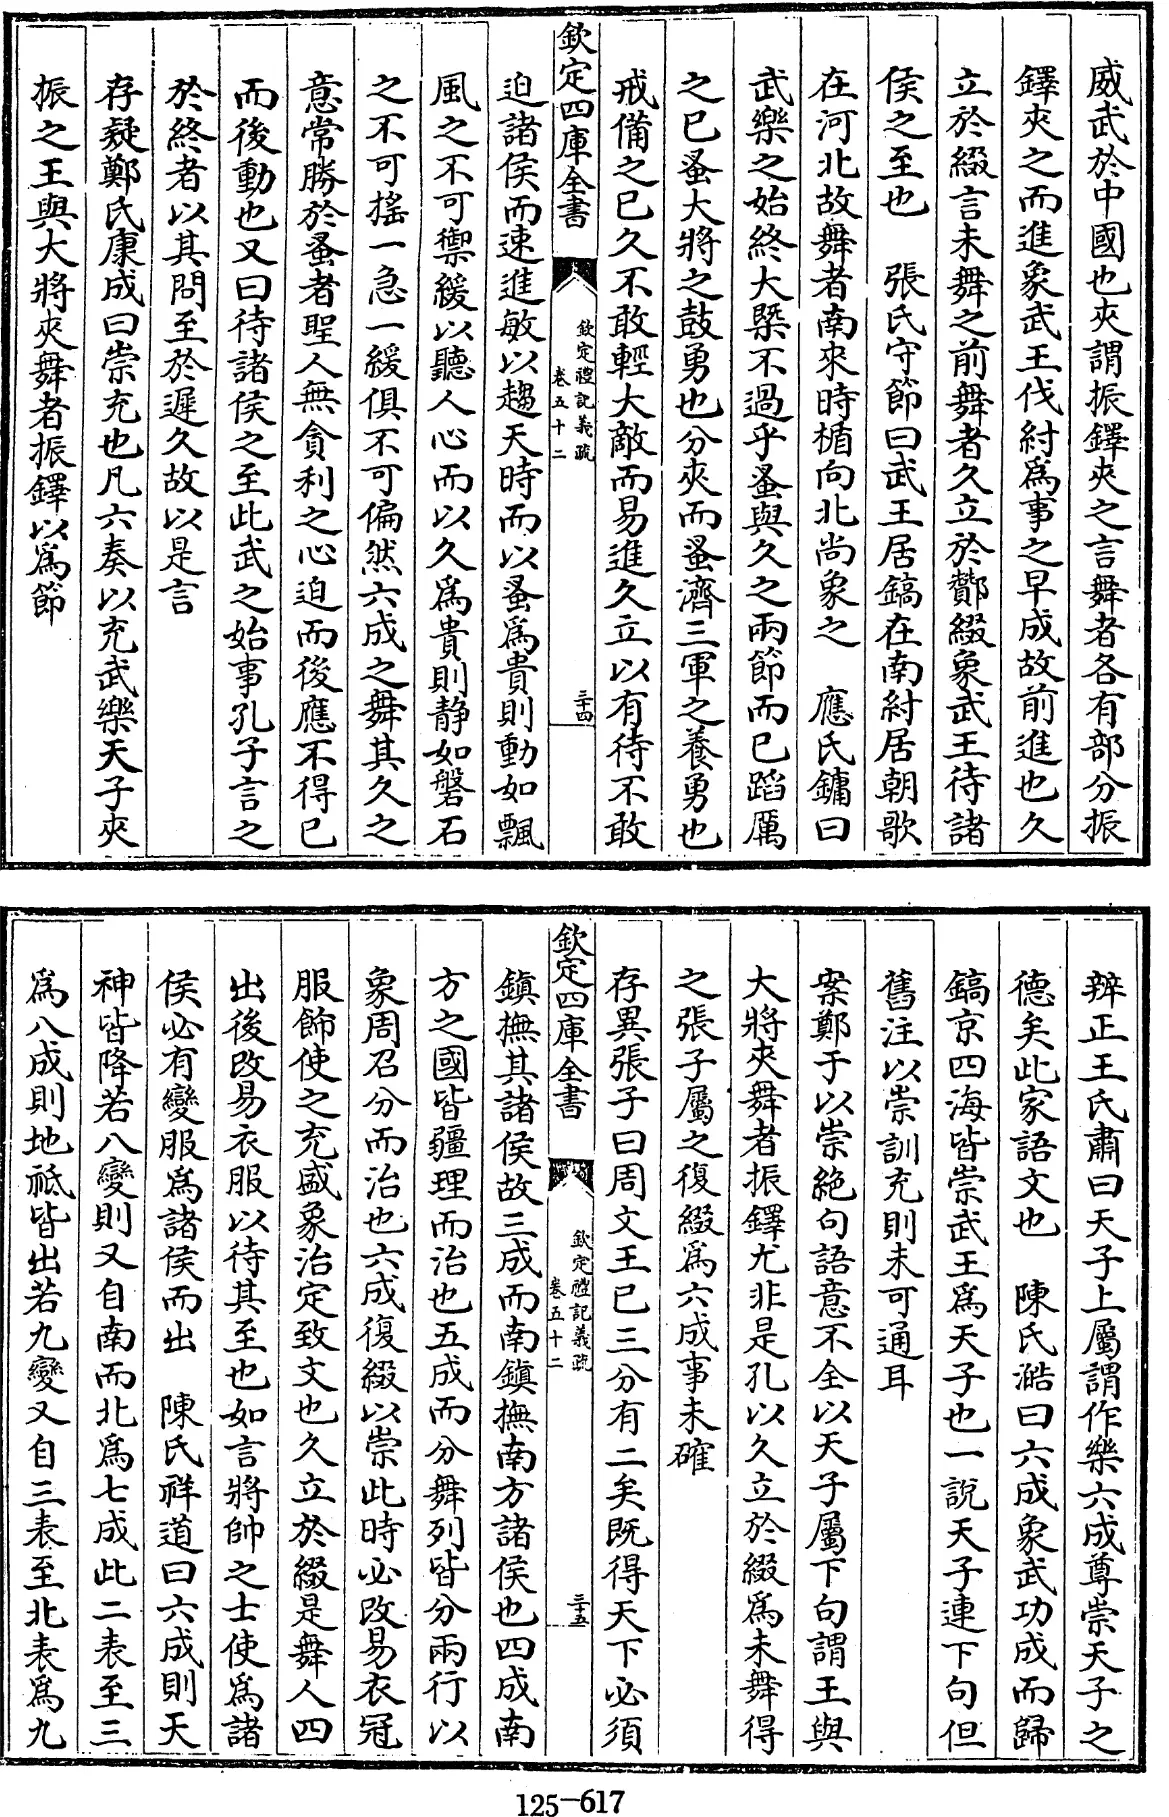 威武於中國也夾謂振鐸夾之言舞者各有部分振
鐸夾之而進象武王伐紂為事之早成故前進也久
立於綴言未舞之前舞者久立於酇綴象武王待諸
侯之至也　張氏守節曰武王居鎬在南紂居朝歌
在河北故舞者南來時楯向北尚象之　應氏鏞曰
武樂之始終大槩不過乎蚤與久之兩節而已蹈厲
之已蚤大將之鼓勇也分夾而蚤濟三軍之養勇也
戒備之已久不敢輕大敵而易進久立以有待不敢
欽定四庫全書
欽定禮記義疏
卷五十二
三十四
迫諸侯而速進敏以趨天時而以蚤為貴則動如飄
風之不可禦緩以聽人心而以久為貴則靜如磐石
之不可搖一急一緩俱不可偏然六成之舞其久之
意常勝於蚤者聖人無貪利之心迫而後應不得已
而後動也又曰待諸侯之至此武之始事孔子言之
於終者以其問至於遲久故以是言
存疑鄭氏康成曰崇充也凡六奏以充武樂天子夾
振之王與大將夾舞者振鐸以為節
辨正王氏肅曰天子上屬謂作樂六成尊崇天子之
德矣此家語文也　陳氏澔曰六成象武功成而歸
鎬京四海皆崇武王為天子也一說天子連下句但
舊注以崇訓充則未可通耳
案鄭于以崇絶句語意不全以天子屬下句謂王與
大將夾舞者振鐸尤非是孔以久立於綴為未舞得
之張子屬之復綴為六成事未確
存異張子曰周文王已三分有二矣既得天下必須
欽定四庫全書
欽定禮記義疏
卷五十二
三十五
鎮撫其諸侯故三成而南鎮撫南方諸侯也四成南
方之國皆疆理而治也五成而分舞列皆分兩行以
象周召分而治也六成復綴以崇此時必改易衣冠
服飾使之充盛象治定致文也久立於綴是舞人四
出後改易衣服以待其至也如言將帥之士使為諸
侯必有變服為諸侯而出　陳氏祥道曰六成則天
神皆降若八變則又自南而北為七成此二表至三
為八成則地祗皆出若九變又自三表至北表為九
125-617